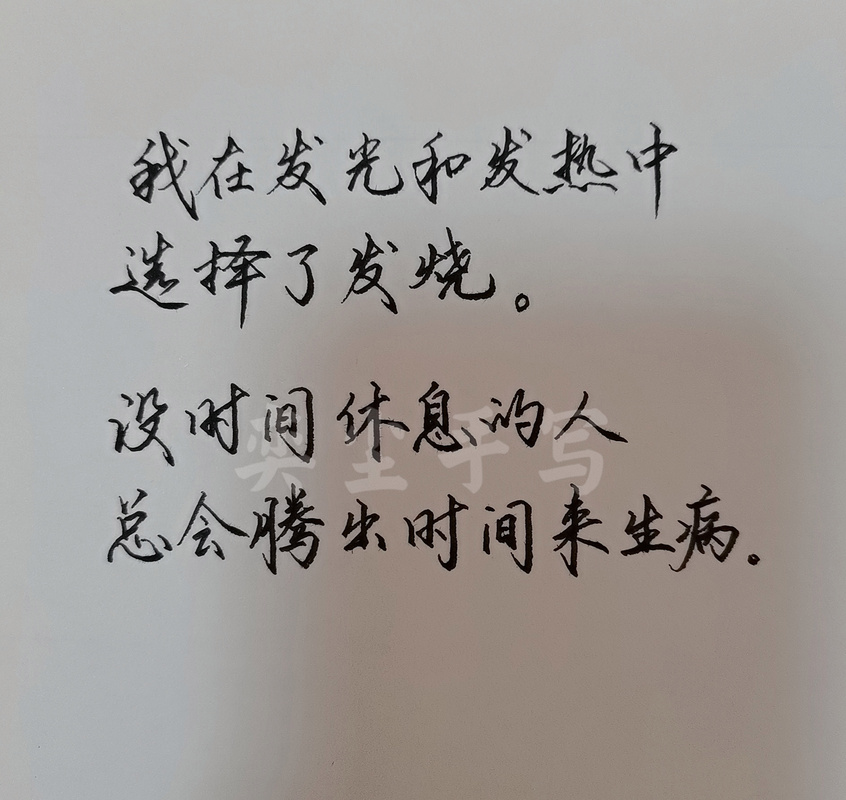 我在发光和发热中
选择了发烧。
没时间休息的人
总会腾出时间来生病。